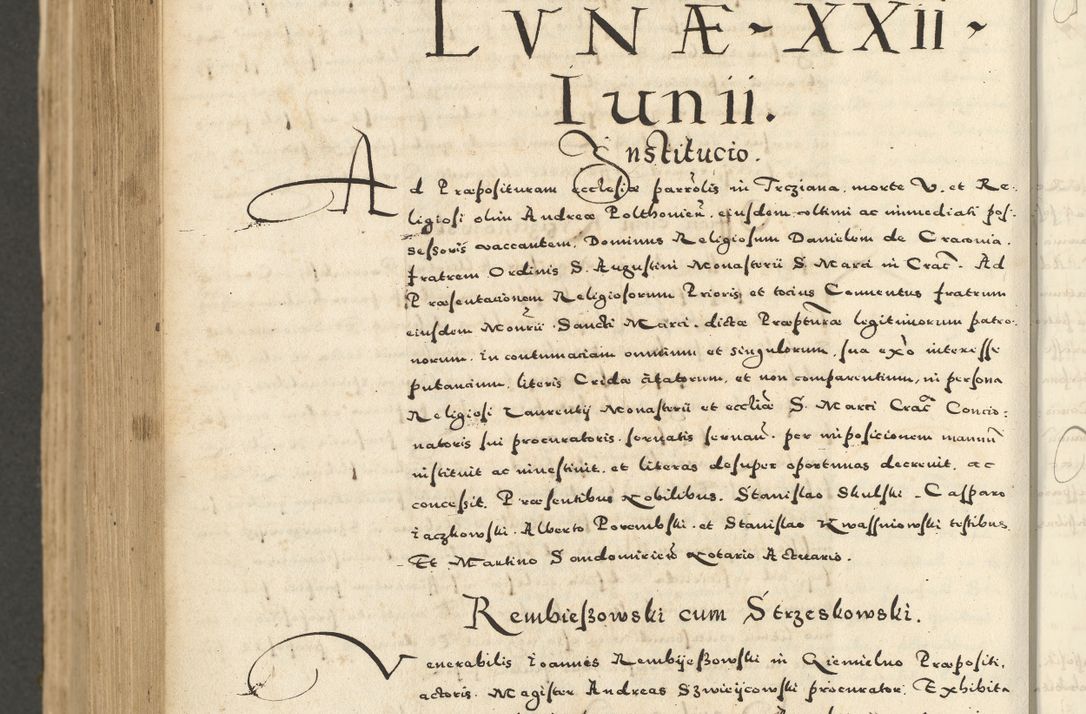 LVNÆ - XXii -
Iunii.
Institucio.
Ad Præposituram ecclesiæ parrolis in Trcziana, morte V. et Re:
ligiosi olim Andreæ Polthonien. eiusdem voltimi ac immediati pos:
sessoris vaccantem, Dominus Religiosum Danielem de Cracouia.
fratrem Ordinis S. Augustini Monasterii S. Marci in Crac. Ad
Præsentacionem Religiosorum Prioris et tocius Conuentus fratrum
eiusdem Monrii Sancti Marci. dictæ Præpturæ legitimorum patro:
norum. In contumaciam omnium et singulorum, sua exo interesse
putancium, literis Cridæ citatorum, et non comparentium, in persona
Religiosi Laurentij Monasterii et eccliæ S. Marci Crac Concio:
natoris sui procuratoris. seruatis seruan. per imposicionem manuu
instituit ac inuestiuit, et literas desuper oportunas decreuit, ac
concessit. Præsentibus Nobilibus. Stanislao Skulski. Casparo
Iaczkowski. Alberto Porembski. et Stanislao Kwassniowski testibus
Et Martino Sandomirien Notario Actuario.
Rembieszowski cum Strzeskowski.
Venerabilis Ioannes Rembijeszowski in Giemielno Præpositi,
actoris. Magister Andreas Szwieijcowski procurator. Exhibita